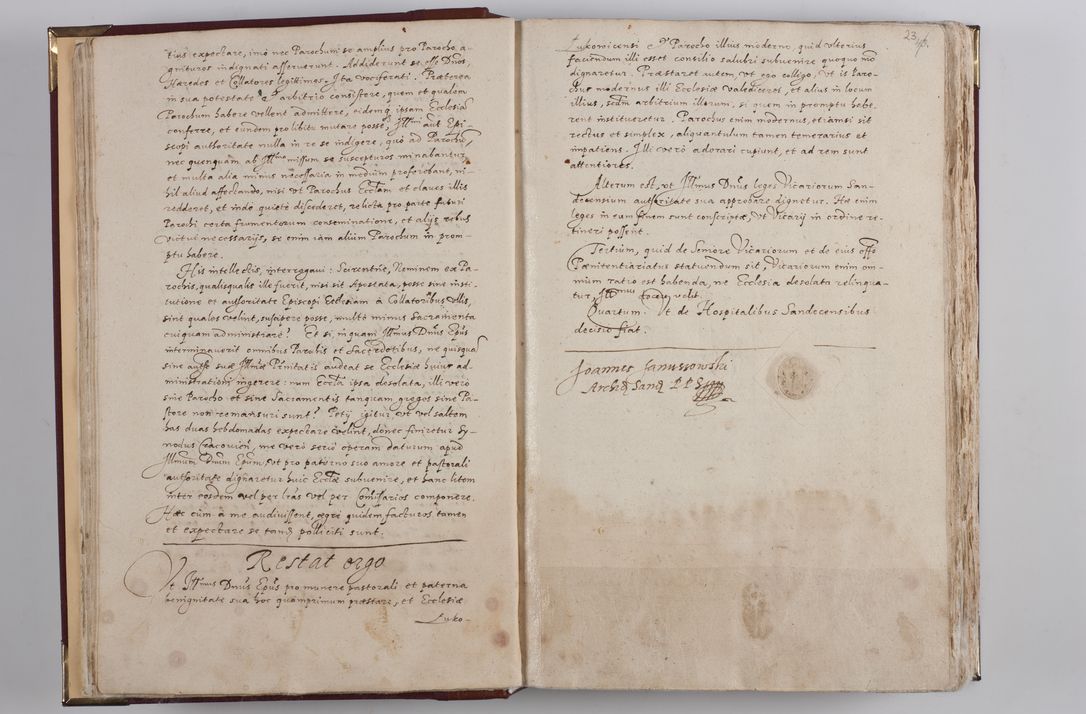 tius expectare, imò nec Parochum se amplius pro Parocho a-
gnituros indignati asseverunt. Addiderunt se esse Dños,
Hæredes et Collatores legittimos. Ita vociferati. Præterea
in sua potestate et arbitrio consistere, quem et qualem
Parochum habere vellent admittere, eidemq ipsam Ecclesiã
conferre, et eundem pro libitu mutare posse, Illmi aut Epi-
scopi authoritate nulla in re se indigere, quo ad Parochũ,
nec quenquam ab Illmo missum se suscepturos minabantur
et multa alia minus necessaria in medium proferebant, ni-
hil aliud affectando, nisi vt Parochus Ecctam et claues illis
redderet, et inde quietè discederet, relicta pro parte futuri
Parochi certa frumentorum conseminatione, et alijs rebus
victui necessarijs, se enim iam alium Parochum in prom-
ptu habere.
His intellectis, interrogaui: Scirentne, Neminem ex Pa-
rochis, qualisqualis ille fuerit, nisi sit Apostata, posse sine insti-
tutione et authoritate Episcopi Ecclesiam à Collatoribus vllis,
sint quales velint, suscipere posse, multò minus Sacramenta
cuiquam administrare? Et si, inquam, Illmus Dnus Epus
interminauerit omnibus Parochis et Sacerdotibus, ne quisquã
sine autho suæ Illmæ Ptinitatis audeat se Ecclesiæ huius ad-
ministrationi ingerere: num Eccta ipsa desolata, illi verò
sine Parocho et sine Sacramentis tanquam greges sine Pa-
store non remansuri sunt? Petij igitur vt vel saltem
has duas hebdomadas expectare velint, donec finiretur Sy-
nodus Cracouien, me verò seriò operam daturum apud
Illmum Dnum Epum, vt pro paterno suo amore et pastorali
authoritate dignaretur huic Ecctæ subuenire, et hanc litem
inter eosdem vel per lras vel per Comissarios componere.
Hæc cùm à me audiuissent, ægrè quidem facturos tamen
et expectare se tandẽ polliciti sunt.
Restat ergo
Vt Illmus Dnus Epus pro munere pastorali et paterna
benignitate sua hoc quamprimum præstare, et Ecclesiæ
Luko-
23
Lukowicensi et Parocho illius moderno, quid vlterius
faciendum illi esset consilio salubri subuenire quoquo mõ
dignaretur. Præstaret autem, vt ego colligo, vt is Paro-
chus modernus illi Ecclesiæ valediceret, et alius in locum
illius, sedm arbitrium illorum, si quem in promptu habe-
rent institueretur. Parochus enim modernus, etiamsi sit
rectus et simplex, aliquantulum tamen temerarius et
impatiens. Illi verò adorari cupiunt, et ad rem sunt
attentiores.
Alterum est, vt Illmus Dnus leges Vicariorum San-
decensium authoritate sua approbare dignetur. Hæ enim
leges in eum finem sunt conscriptæ, vt Vicarij in ordine re-
tineri possent.
Tertium, quid de Seniore Vicariorum et de eius offo
Pænitentiariatus statuendum sit, Vicariorum enim om-
nium ratio est habenda, ne Ecclesia desolata relinqua-
tur,
Quartum. Vt de Hospitalibus Sandecensibus
decisio fiat.
Joannes Januszowski
Archid Sand